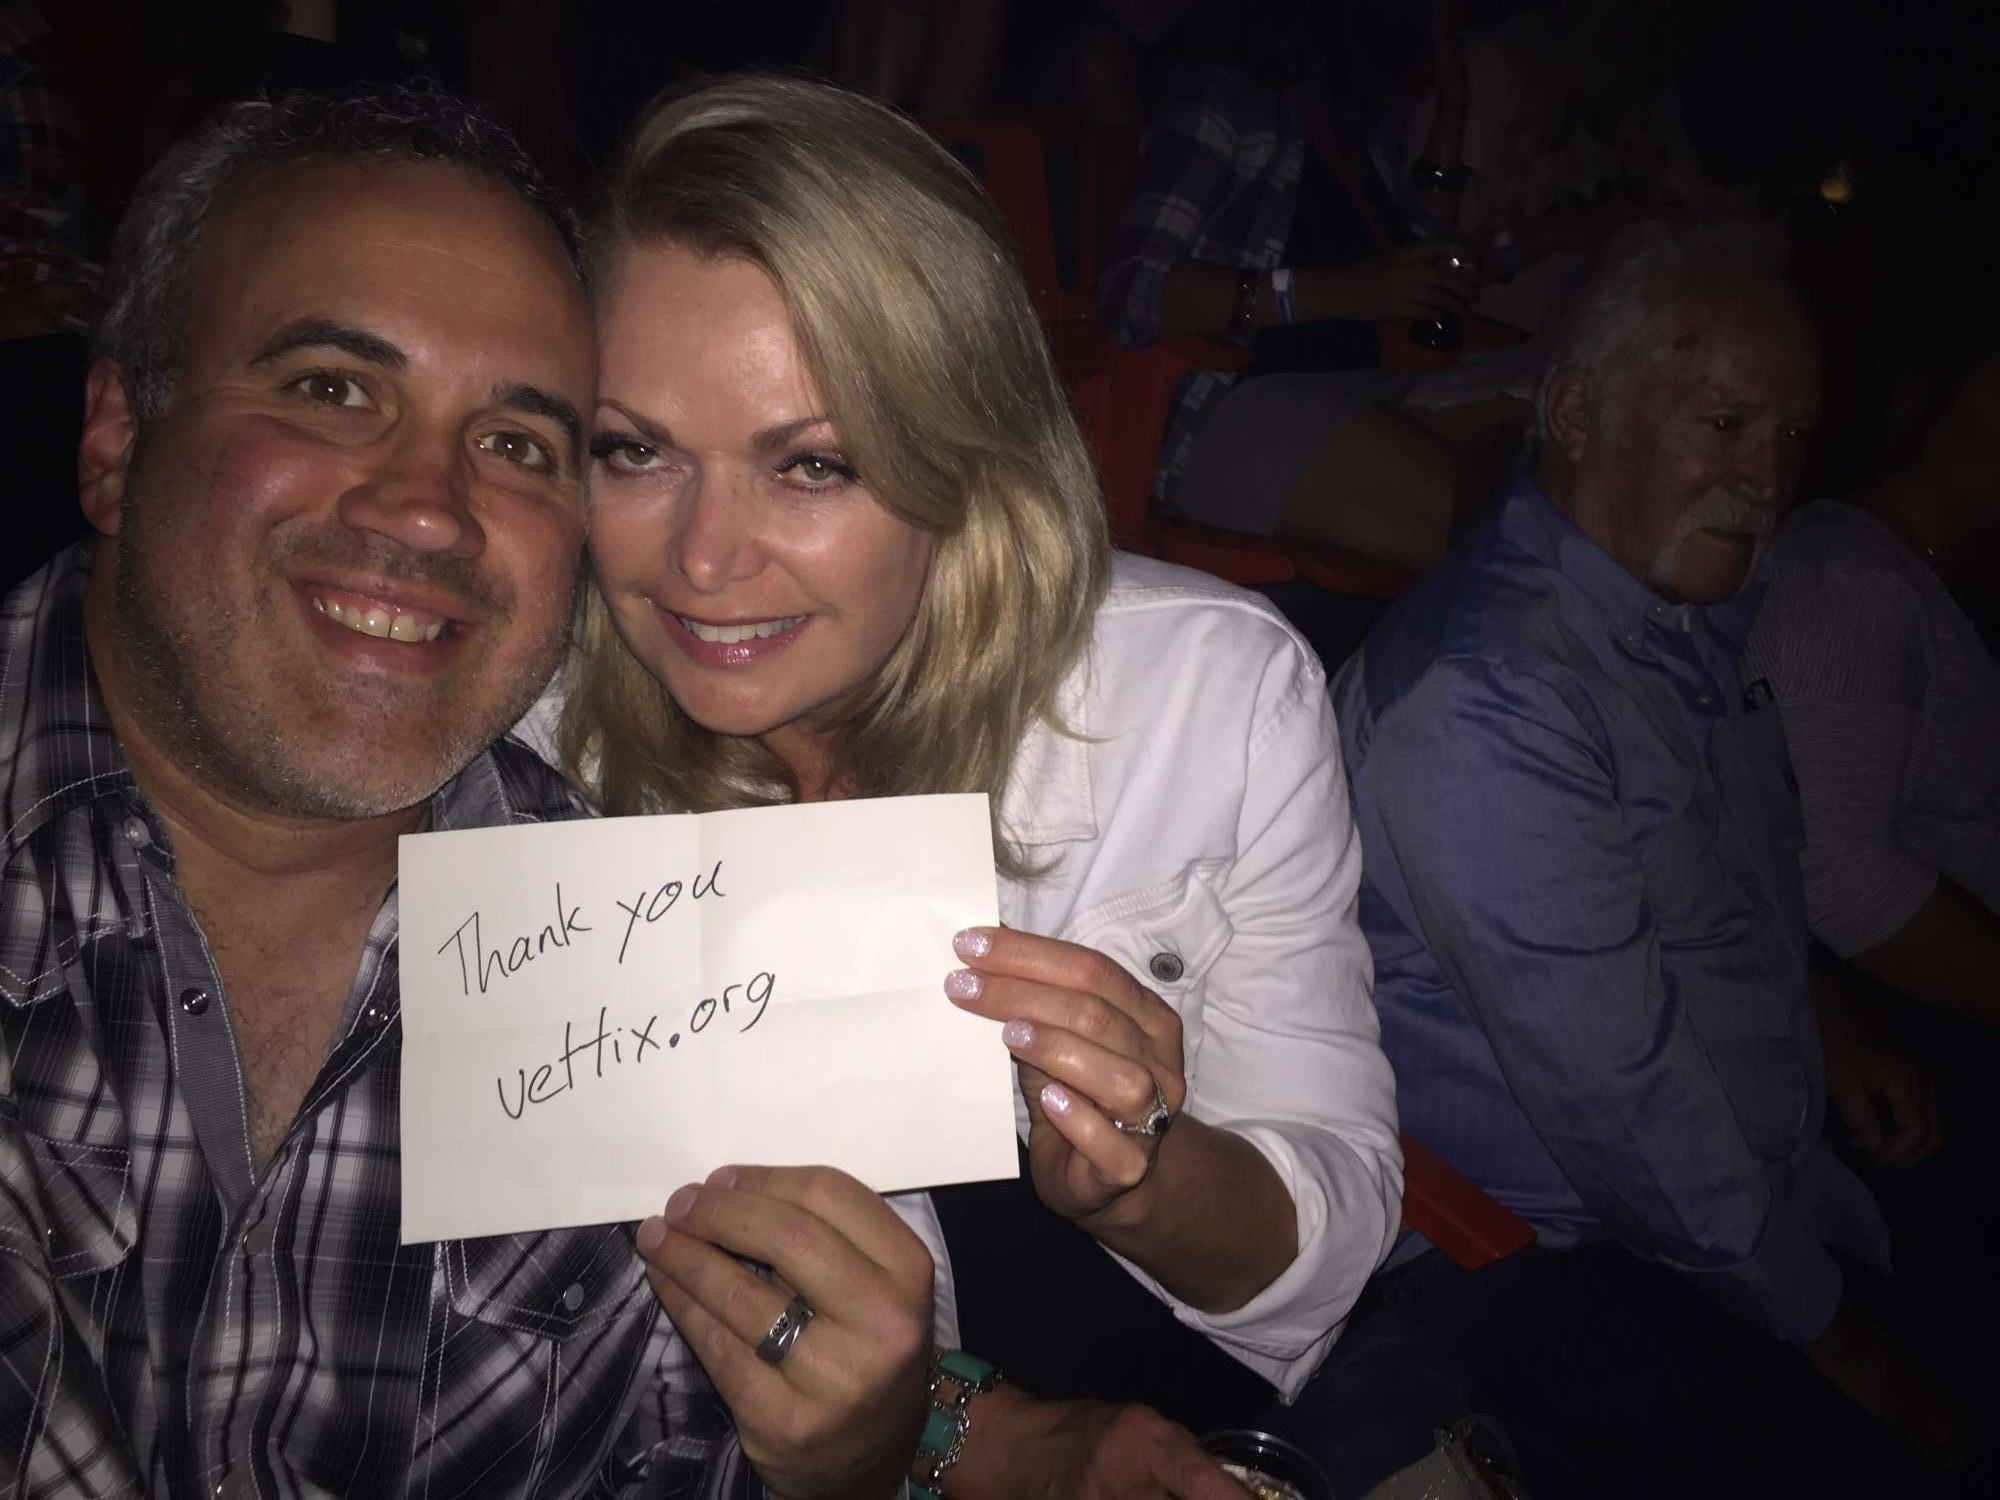 Thank you
vettix.org